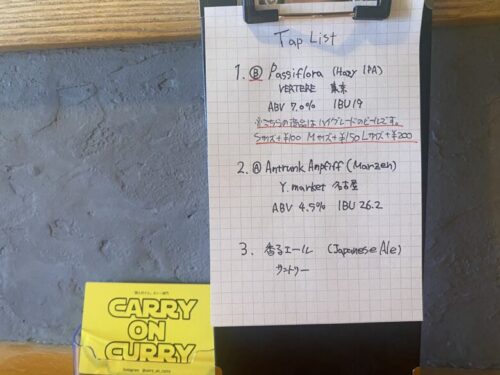 Tap List
1. Ⓑ Passiflora (Hazy IPA)
VERTERE 東京
ABV 7.0% IBU 19
※こちらの商品はハイグレードのビールです。
Sサイズ+¥100 Mサイズ+¥150 Lサイズ+¥200
2. Ⓐ Antrunk Anpfiff (Marzen)
Y.market 名古屋
ABV 4.5% IBU 26.2
3. 香るエール (Japanese Ale)
サントリー
CARRY
ON
CURRY
Instagram @carry_on_curry